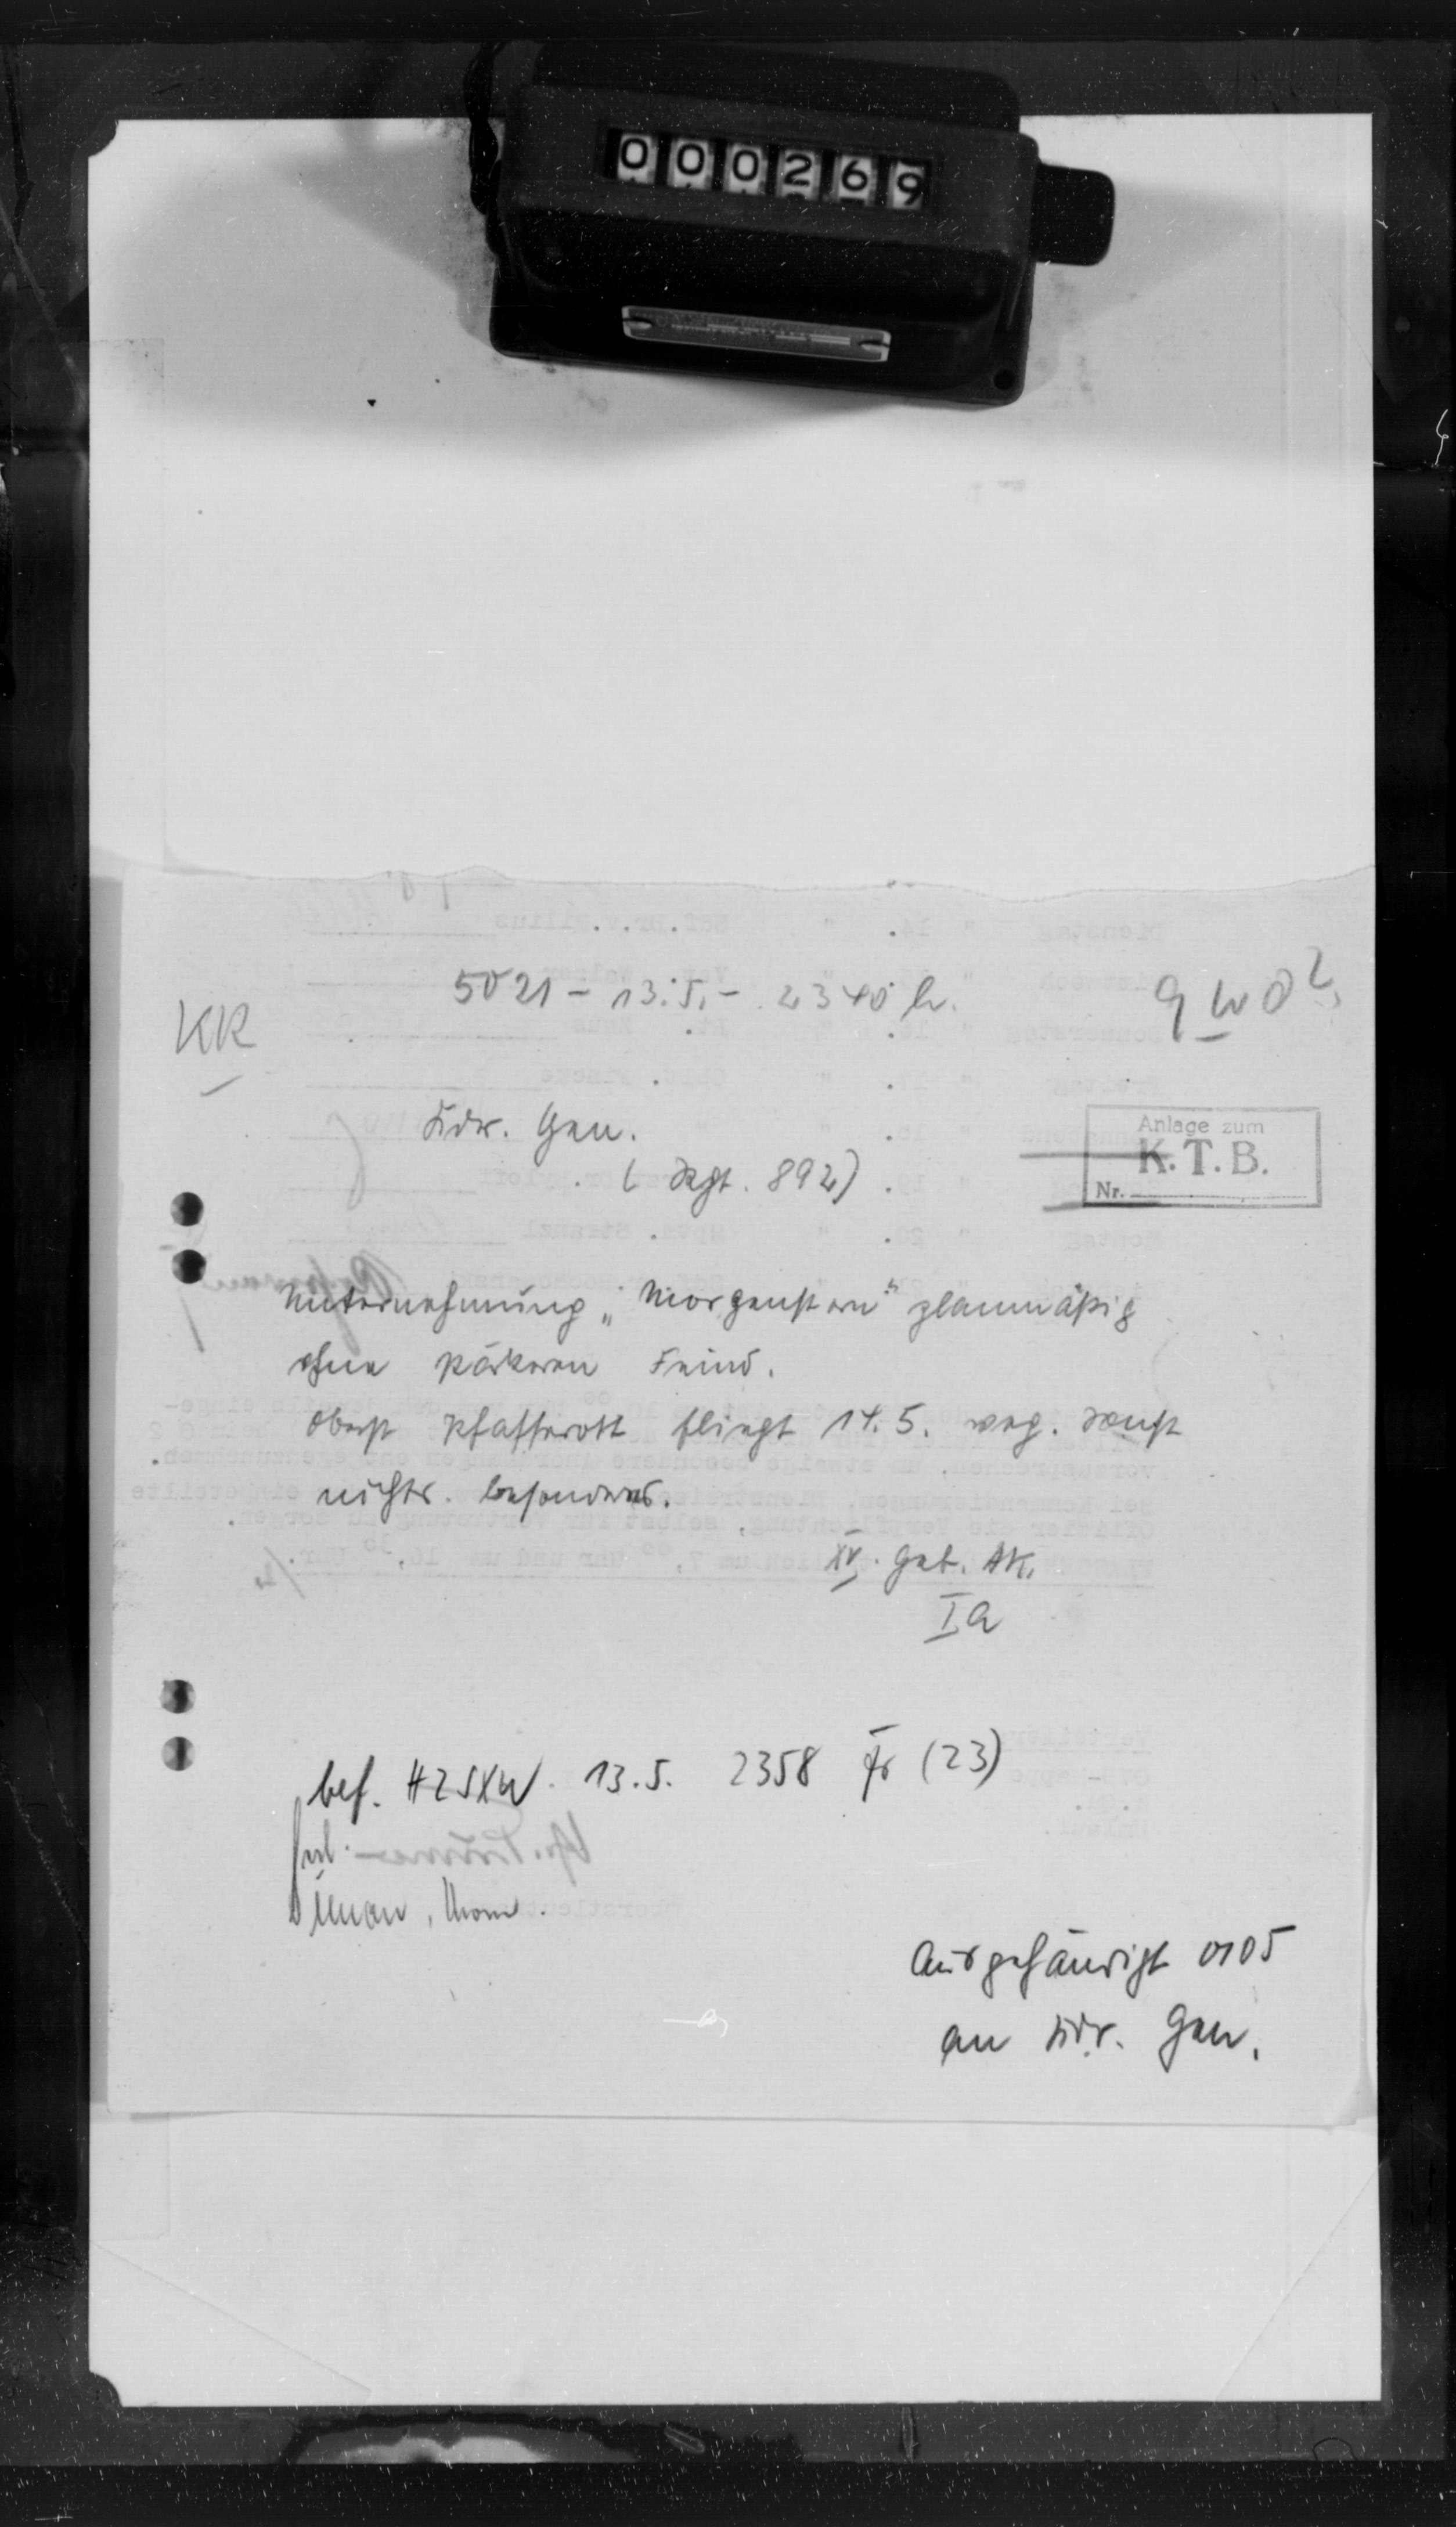 000269
5021 - 13.5. - 2340 h.
KR
Kdr. Gen.
( Rgt. 892)
Anlage zum
K.T.B.
Nr.
Unternehmung „Morgenstern" planmäßig
ohne stärkeren Feind.
Oberst Pfafferott fliegt 14.5. weg. Sonst
nichts besonderes.
XV. Geb. AK.
Ia
bef. 13.5. 2358 (23)
Ausgehändigt 0105
an Kdr. Gen.